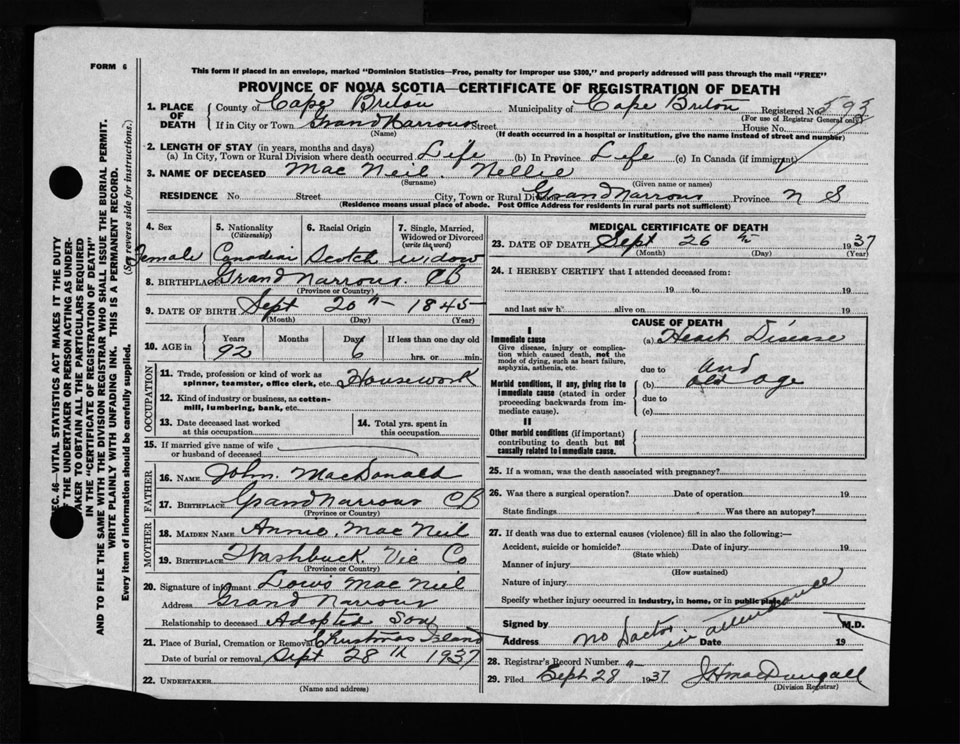 FORM 6
This form if placed in an envelope, marked "Dominion Statistics—Free, penalty for improper use $300," and properly addressed will pass through the mail "FREE"
PROVINCE OF NOVA SCOTIA—CERTIFICATE OF REGISTRATION OF DEATH
1. PLACE OF DEATH
County of Cape Breton Municipality of Cape Breton Registered No. 593
(For use of Registrar General only)
If in City or Town Grand Narrows Street House No.
(Name) (If death occurred in a hospital or institution, give the name instead of street and number)
2. LENGTH OF STAY (in years, months and days)
(a) In City, Town or Rural Division where death occurred Life (b) In Province Life (c) In Canada (if immigrant)
3. NAME OF DECEASED Mac Neil. Nellie
(Surname) (Given name or names)
RESIDENCE No. Street City, Town or Rural Division Grand Narrows Province N S
(Residence means usual place of abode. Post Office Address for residents in rural parts not sufficient)
4. Sex Female
5. Nationality (Citizenship) Canadian
6. Racial Origin Scotch
7. Single, Married, Widowed or Divorced (write the word) widow
8. BIRTHPLACE Grand Narrows. CB
(Province or Country)
9. DATE OF BIRTH Sept 20th 1845
(Month) (Day) (Year)
10. AGE in Years 92 Months Days 6 If less than one day old hrs. or min.
OCCUPATION
11. Trade, profession or kind of work as spinner, teamster, office clerk, etc. Housework
12. Kind of industry or business, as cotton-mill, lumbering, bank, etc.
13. Date deceased last worked at this occupation
14. Total yrs. spent in this occupation
15. If married give name of wife or husband of deceased
FATHER
16. NAME John. MacDonald
17. BIRTHPLACE Grand Narrows CB
(Province or Country)
MOTHER
18. MAIDEN NAME Annie. Mac Neil
19. BIRTHPLACE Washbuck. Vic Co
(Province or Country)
20. Signature of informant Lowis Mac Neil
Address Grand Narrows
Relationship to deceased Adopted Son
21. Place of Burial, Cremation or Removal Christmas Island
Date of burial or removal Sept 28th 1937
22. UNDERTAKER
(Name and address)
MEDICAL CERTIFICATE OF DEATH
23. DATE OF DEATH Sept 26th 1937
(Month) (Day) (Year)
24. I HEREBY CERTIFY that I attended deceased from:
19 to 19
and last saw h alive on 19
CAUSE OF DEATH
I
Immediate cause
Give disease, injury or complication which caused death, not the mode of dying, such as heart failure, asphyxia, asthenia, etc.
(a) Heart Disease
due to and
Morbid conditions, if any, giving rise to immediate cause (stated in order proceeding backwards from immediate cause).
(b) old age
due to
(c)
II
Other morbid conditions (if important) contributing to death but not causally related to immediate cause.
25. If a woman, was the death associated with pregnancy?
26. Was there a surgical operation? Date of operation 19
State findings Was there an autopsy?
27. If death was due to external causes (violence) fill in also the following:—
Accident, suicide or homicide? Date of injury 19
(State which)
Manner of injury
(How sustained)
Nature of injury
Specify whether injury occurred in industry, in home, or in public place
Signed by M.D.
Address Date 19
no Doctor in attendance
28. Registrar's Record Number
29. Filed Sept 28 1937 J H MacDougall
(Division Registrar)
SEC. 46—VITAL STATISTICS ACT MAKES IT THE DUTY
OF THE UNDERTAKER OR PERSON ACTING AS UNDER-
TAKER TO OBTAIN ALL THE PARTICULARS REQUIRED
IN THE "CERTIFICATE OF REGISTRATION OF DEATH"
AND TO FILE THE SAME WITH THE DIVISION REGISTRAR WHO SHALL ISSUE THE BURIAL PERMIT.
WRITE PLAINLY WITH UNFADING INK. THIS IS A PERMANENT RECORD.
Every item of information should be carefully supplied. (See reverse side for instructions.)